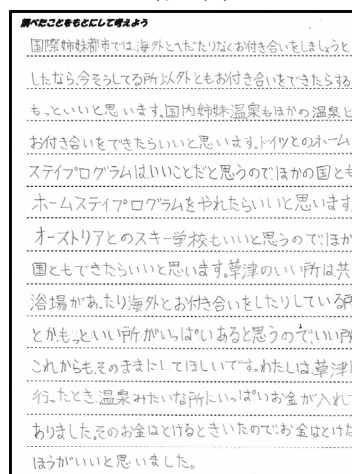 調べたことをもとにして考えよう
国際姉妹都市では、海外とへだたりなくお付き合いをしましょうと
したなら、今そうしてる所以外ともお付き合いをできたらする
もっといいと思います。国内姉妹温泉もほかの温泉と
お付き合いをできたらいいと思います。ドイツとのホーム
ステイプログラムは、いいことだと思うので、ほかの国とも
ホームステイプログラムをやれたらいいと思います
オーストリアとのスキー学校もいいと思うので、ほか
国ともできたらいいと思います。草津のいい所は共
浴場があったり海外とお付き合いをしたりしている所
とか、もっといい所がいっぱいあると思うので、いい所
これからも、そのままにしてほしいです。わたしは、草津
行ったとき、温泉みたいな所にいっぱいお金が入れて
ありました。そのお金はとけるときいたので、お金はとけた
ほうがいいと思いました。